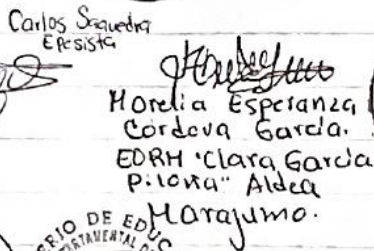 Carlos Saquedra
Epesista
Morelia Esperanza
Cordova Garcia.
EORH "Clara Garcia
Piloña" Aldea
Marajumo.
DE EDUC